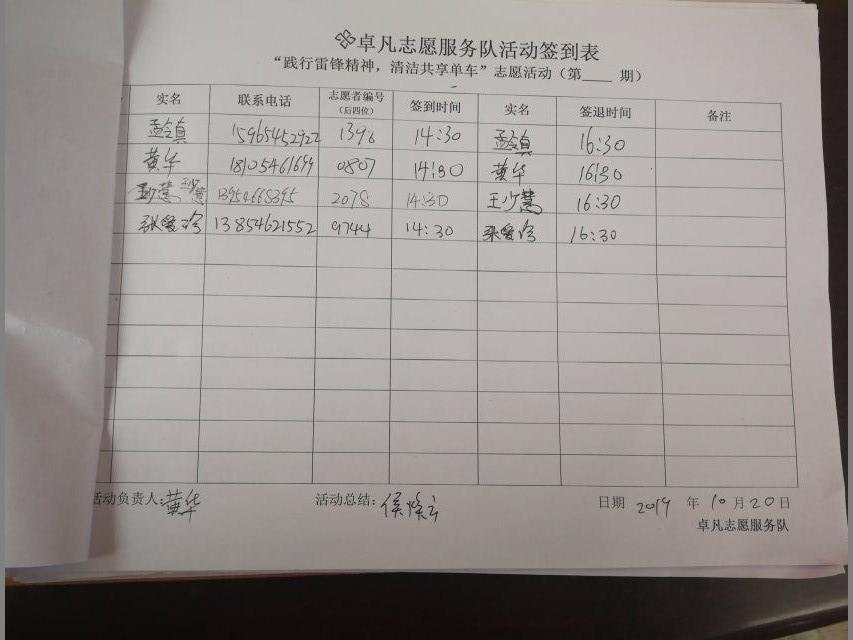 卓凡志愿服务队活动签到表
“践行雷锋精神，清洁共享单车”志愿活动（第____ 期）
实名 联系电话 志愿者编号（后四位） 签到时间 实名 签退时间 备注
孟令真 15965452922 1396 14:30 孟令真 16:30
黄华 18105461699 0807 14:30 黄华 16:30
王少慧 13954668395 2078 14:30 王少慧 16:30
张爱珍 13854621552 9744 14:30 张爱珍 16:30
活动负责人:黄华 活动总结: 侯 日期 2019 年 10 月 20 日
卓凡志愿服务队